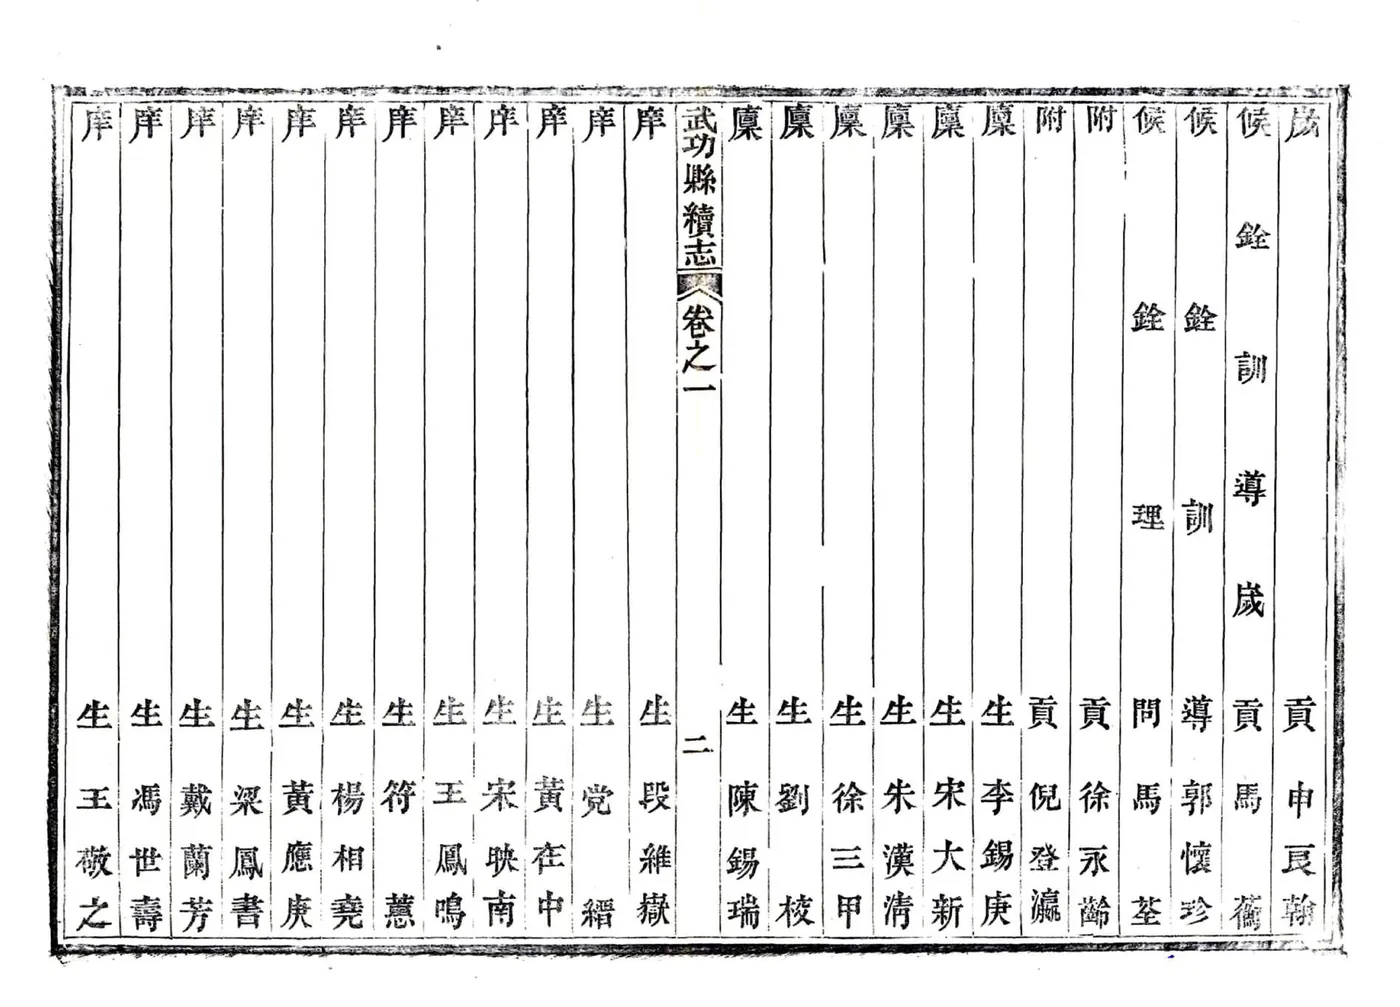 歲貢申良翰
候銓訓導歲貢馬舊
候銓訓導郭懷珍
候銓理問馬荃
附貢徐永齡
附貢倪登瀛
廩生李錫庚
廩生宋大新
廩生朱漢清
廩生徐三甲
廩生劉棱
廩生陳錫瑞
武功縣續志卷之一 二
庠生段維嶽
庠生党縉
庠生黃在中
庠生宋映南
庠生王鳳鳴
庠生符蕙
庠生楊相堯
庠生黃應庚
庠生梁鳳書
庠生戴蘭芳
庠生馮世壽
庠生王敬之